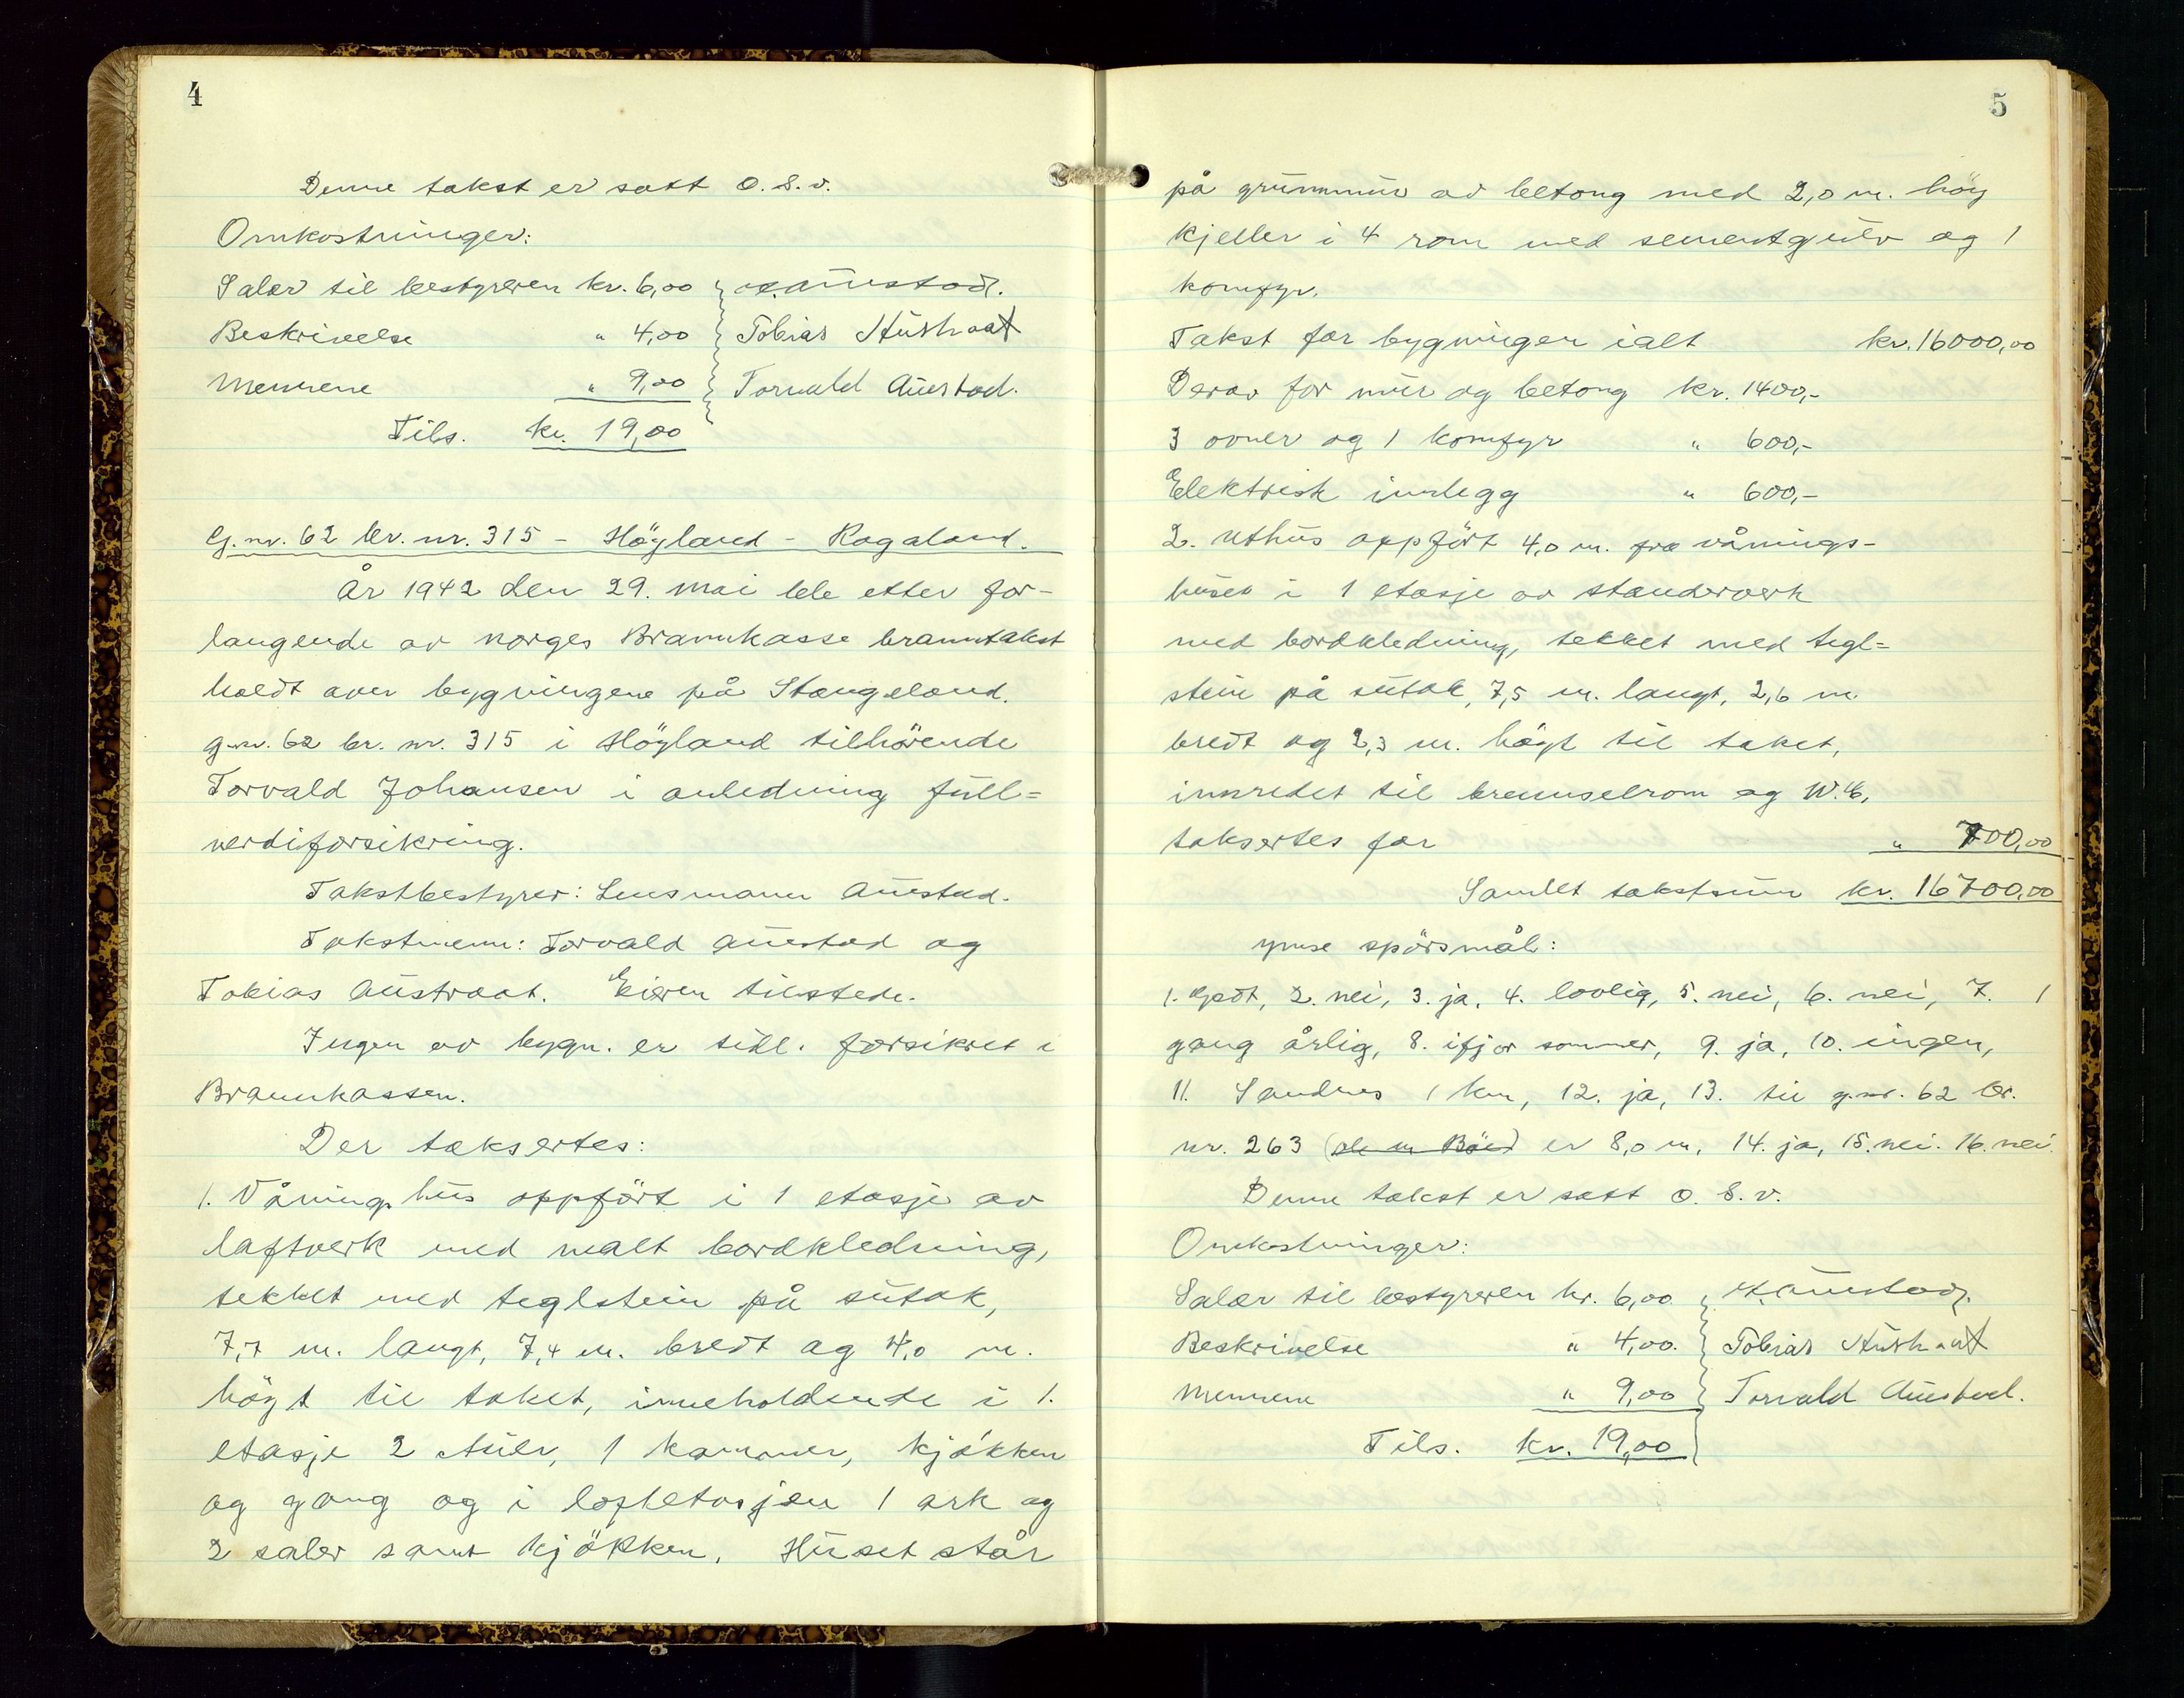 4
Denne takst er satt o.s.v.
Omkostninger:
Salær til bestyreren kr. 6,00 Austad.
Beskrivelse " 4,00 Tobias Austraat
Mennene " 9,00 Torvald Austad.
Tils. kr. 19,00
G.nr. 62 br. nr. 315 - Höyland - Rogaland.
År 1942 den 29. mai ble etter for-
langende av Norges Brannkasse branntakst
holdt over bygningene på Stangeland.
g.nr. 62 br. nr. 315 i Höyland tilhörende
Torvald Johansen i anledning full=
verdiforsikring.
Takstbestyrer: Lensmann Austad.
Takstmenn: Torvald Austad og
Tobias Austraat. Eieren tilstede.
Ingen av bygn. er tidl. forsikret i
Brannkassen.
Der taksertes:
1. Våningshus oppfört i 1 etasje av
laftverk med malt bordkledning,
tekket med teglstein på sutak,
7,7 m. langt, 7,4 m. bredt og 4,0 m.
högt til taket, inneholdende i 1.
etasje 2 stuer, 1 kammer, kjökken
og gang og i loftetasjen 1 ark og
2 saler samt kjökken. Huset står
5
på grunnmur av betong med 2,0 m. höy
kjeller i 4 rom med sementgulv og 1
komfyr.
Takst for bygningen ialt kr. 16000,00
Derav for mur og betong kr. 1400,-
3 ovner og 1 komfyr " 600,-
Elektrisk innlegg " 600,-
2. Uthus oppfört 4,0 m. fra vånings-
huset i 1 etasje av standerverk
med bordkledning, tekket med tegl=
stein på sutak, 7,5 m. langt, 2,6 m.
bredt og 2,3 m. högt til taket,
innredet til brenselrom og W.C.,
taksertes for " 700,00
Samlet takstsum kr. 16700,00
Ymse spörsmål:
1. Godt, 2. nei, 3. ja, 4. lovlig, 5. nei, 6. nei, 7. 1
gang årlig, 8. ifjor sommer, 9. ja, 10. ingen,
11. Sandnes 1 km, 12. ja, 13. til g.nr. 62 br.
nr. 263 er 8,0 m, 14. ja, 15. nei. 16. nei.
Denne takst er satt o.s.v.
Omkostninger:
Salær til bestyreren kr. 6,00 Austad.
Beskrivelse " 4,00. Tobias Austraat
Mennene " 9,00 Torvald Austad.
Tils. kr. 19,00